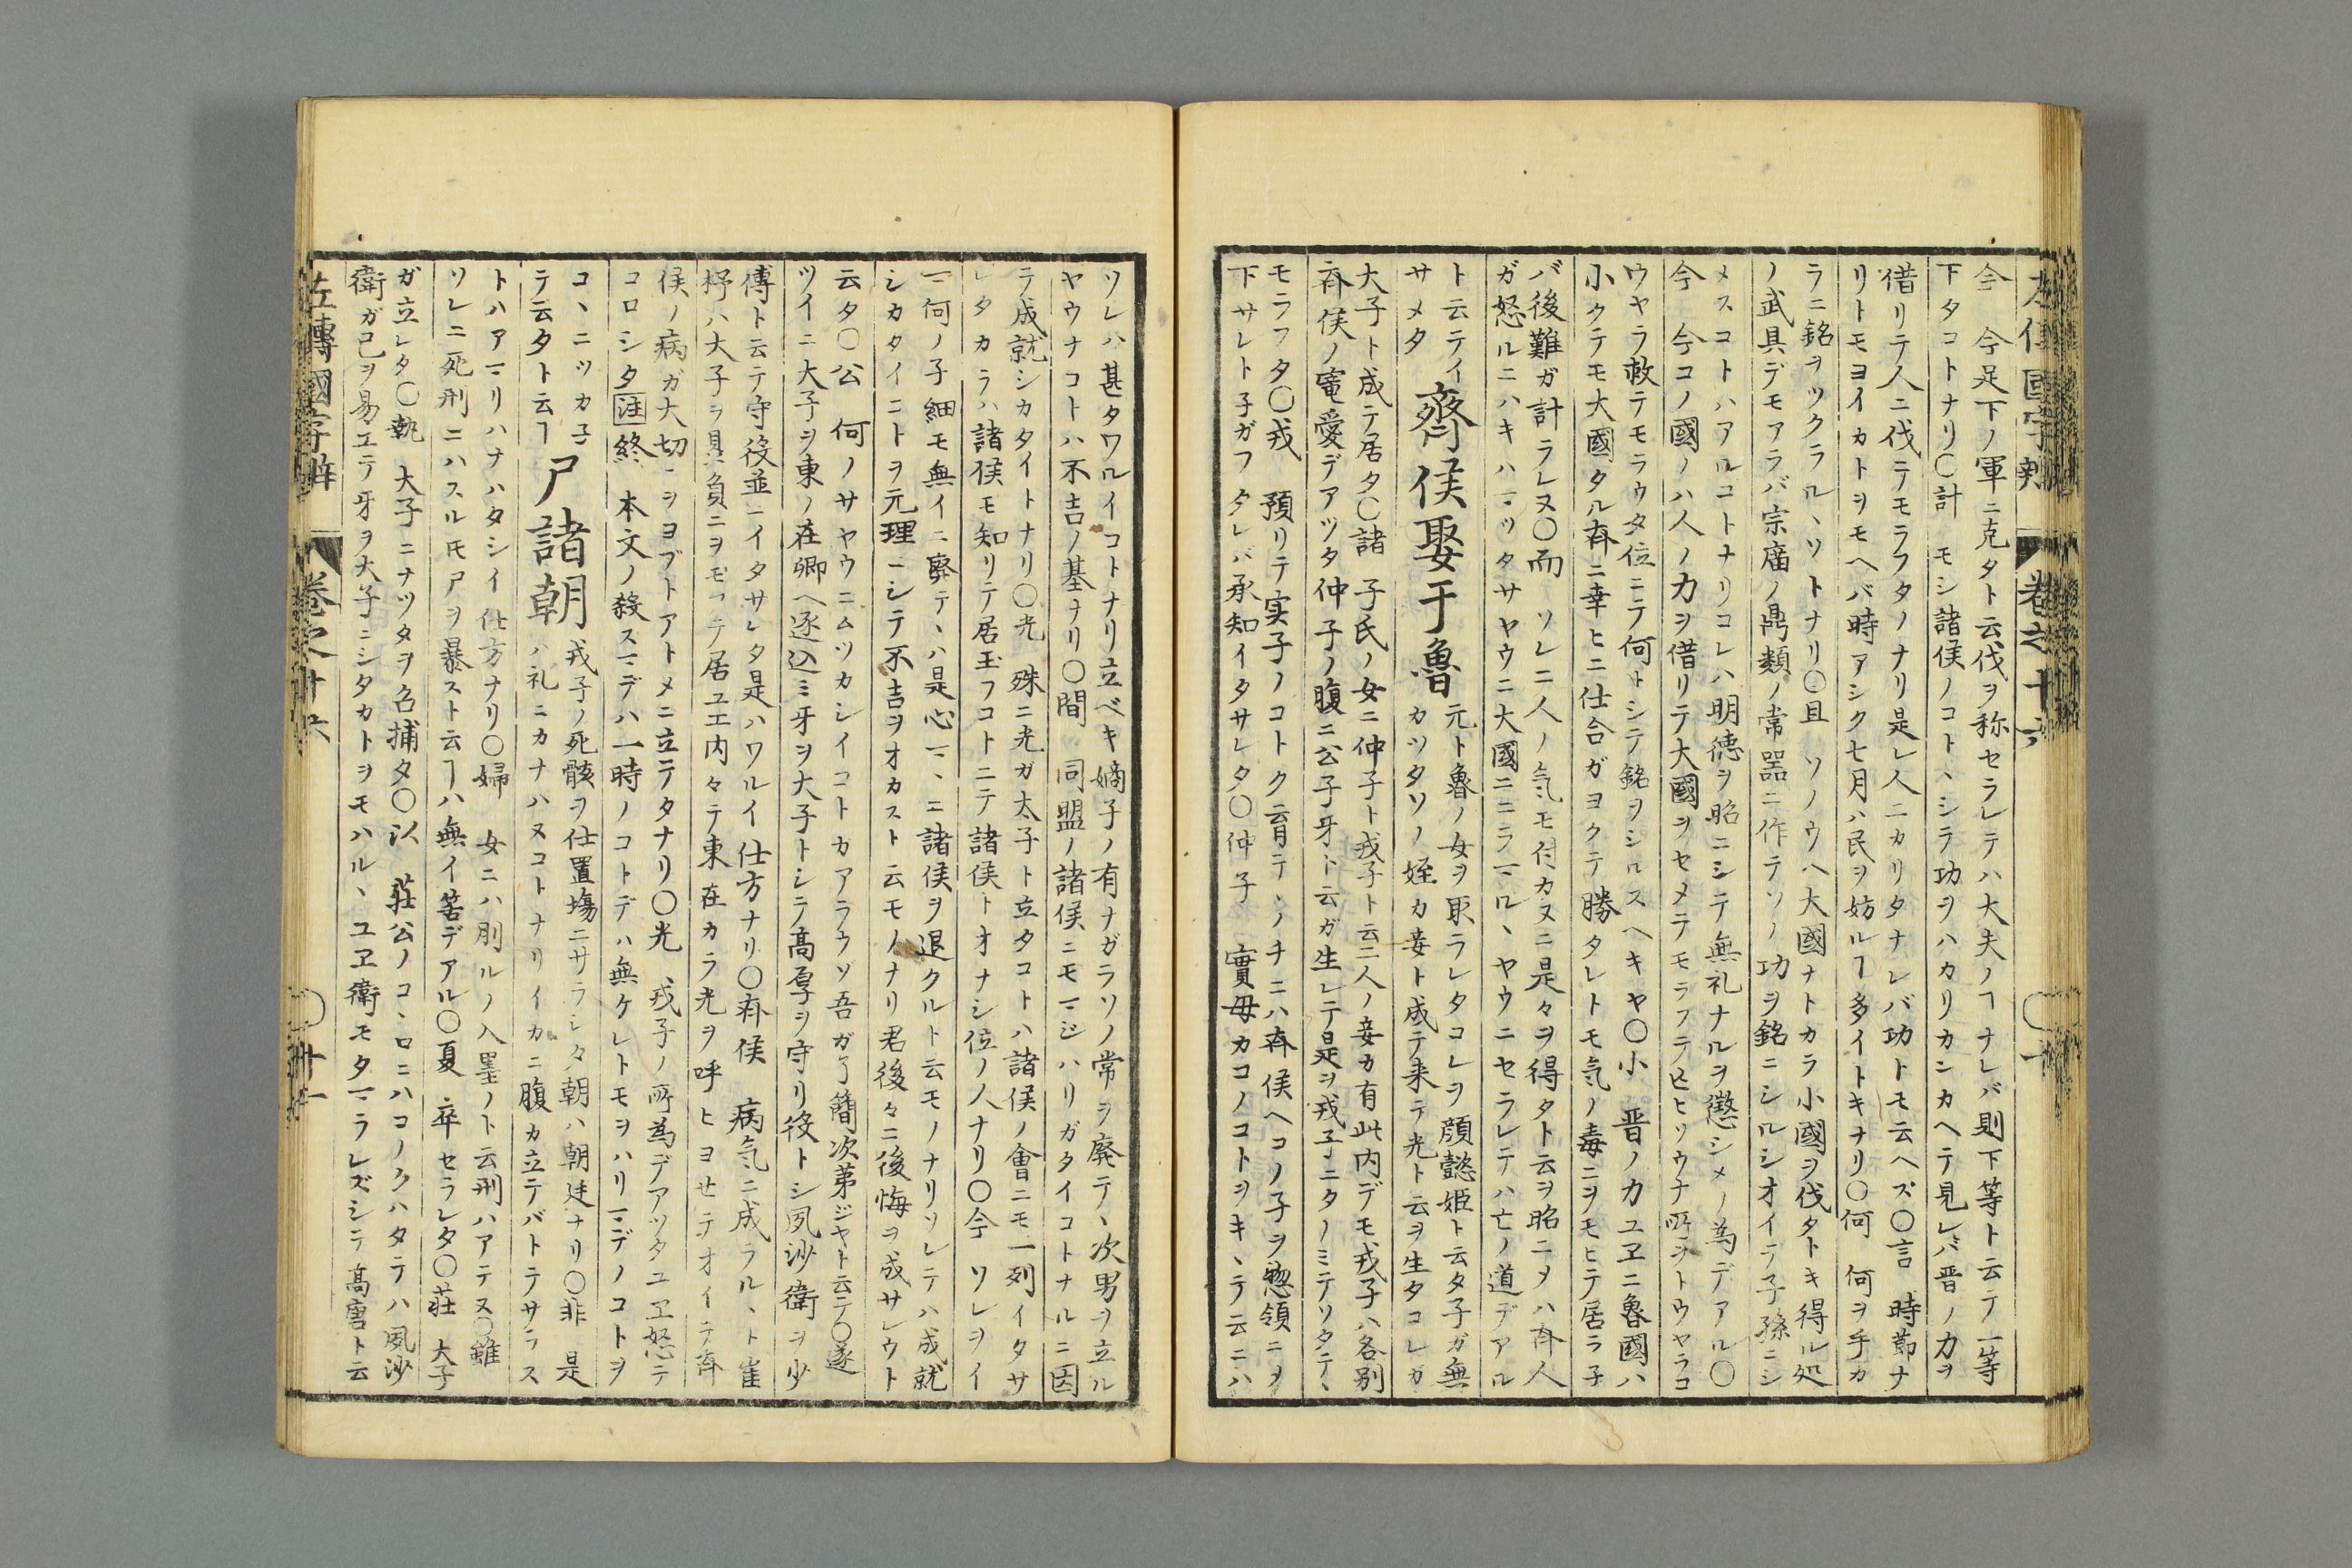 今 今足下ノ軍ニ克タト云伐ヲ称セラレテハ大夫ノヿナレバ則下等ト云テ一等
下タコトナリ〇計 モシ諸侯ノコトヽシラ功ヲハカリカンカヘテ見レバ晋ノ力ヲ
借リテ人ニ伐テモラフタノナリ是レ人ニカリタナレバ功トモ云ヘズ〇言 時節ナ
リトモヨイカトヲモヘバ時アシク七月ハ民ヲ妨ルヿ多イトキナリ〇何 何ヲ手カ
ラニ銘ヲツクラルヽソトナリ〇且 ソノウヘ大國ナトカラ小國ヲ伐タトキ得ル処
ノ武具デモアラバ宗庿ノ鼎類ノ常噐ニ作テソノ功ヲ銘ニシルシオイテ子孫ニシ
メスコトハアルコトナリコレハ明徳ヲ昭ニシテ無礼ナルヲ懲シメノ為デアル〇
今 今コノ國ノハ人ノ力ヲ借リテ大國ヲセメテモラフテ
ウヤラ救テモラウタ位ニテ何トシテ銘ヲシルスヘキヤ〇小 晋ノカユヱニ魯國ハ
小クテモ大國タル斉ニ幸ヒニ仕合ガヨクテ勝タレトモ気ノ毒ニヲモヒテ居ラ子
バ後難ガ計ラレヌ〇而 ソレニ人ノ気モ付カヌニ是々ヲ得タト云ヲ昭ニメハ斉人
ガ怒ルニハキハマツタサヤウニ大國ニニラマルヽヤウニセラレテハ亡ノ道デアル
ト云テイサメタ 齊侯娶于魯 元ト魯ノ女ヲ取ラレタコレヲ顔懿姫ト云タ子ガ無カツタソノ姪カ妾ト成テ来テ光ト云ヲ生タコレガ
大子ト成テ居タ〇諸 子氏ノ女ニ仲子ト戎子ト云二人ノ妾カ有此内デモ戎子ハ各別
斉侯ノ寵愛デアツタ仲子ノ腹ニ公子牙ト云ガ生レテ是ヲ戎子ニタノミテソタテヽ
モラフタ〇戎 預リテ実子ノコトク育テヽノチニハ斉侯ヘコノ子ヲ惣領ニメ
下サレト子ガフタレバ承知イタサレタ〇仲子 實母カコノコトヲキヽテ云ニハ
ソレハ甚タワルイコトナリ立ベキ嫡子ノ有ナガラソノ常ヲ廃テヽ次男ヲ立ル
ヤウナコトハ不吉ノ基ナリ〇間 同盟ノ諸侯ニモマジハリガタイコトナルニ因
ラ成就シカタイトナリ〇光 殊ニ光ガ太子ト立タコトハ諸侯ノ會ニモ一列イタサ
レタカラハ諸侯モ知リテ居玉フコトニテ諸侯トオナシ位ノ人ナリ〇今 ソレヲイ
マ何ノ子細モ無イニ廃テヽハ是心マヽニ諸侯ヲ退クルト云モノナリソレテハ成就
シカタイコトヲ元理ニシテ不吉ヲオカスト云モノナリ君後々ニ後悔ヲ成サレウト
云タ〇公 何ノサヤウニムツカシイコトカアラウソ吾ガ了簡次第ジヤト云テ〇遂
ツイニ大子ヲ東ノ在郷ヘ逐込ミ牙ヲ大子トシテ髙厚ヲ守リ役トシ夙沙衛ヲ少
傅ト云テ守役並ニイタサレタ是ハワルイ仕方ナリ〇斉侯 病気ニ成ラルヽト崔
杼ハ大子ヲ贔負ニヲモツテ居ユエ内々テ東在カラ光ヲ呼ヒヨセテオイテ斉
侯ノ病ガ大切ニヲヨブトアトメニ立テタナリ〇光 戎子ノ所為デアツタユヱ怒テ
コロシタ注終 本文ノ殺スマデハ一時ノコトデハ無ケレトモヲハリマデノコトヲ
コヽニツカ子テ云タト云ヿ 尸諸朝 戎子ノ死骸ヲ仕置塲ニサラシタ朝ハ朝廷ナリ〇非 是ハ礼ニカナハヌコトナリイカニ腹カ立テバトテサラス
トハアマリハナハタシイ仕方ナリ〇婦 女ニハ刖ルノ入墨ノト云刑ハアテヌ〇雖
ソレニ死刑ニハスル𪜈尸ヲ暴スト云ヿハ無イ筈デアル〇夏 卒セラレタ〇莊 大子
ガ立レタ〇執 大子ニナツタヲ召捕タ〇以 莊公ノコヽロニハコノクハタテハ夙沙
衛ガ己ヲ易エテ牙ヲ大子ニシタカトヲモハルヽユヱ衛モタマラレズシテ髙唐ト云
左傳國字辯 卷之十六 〇卅一